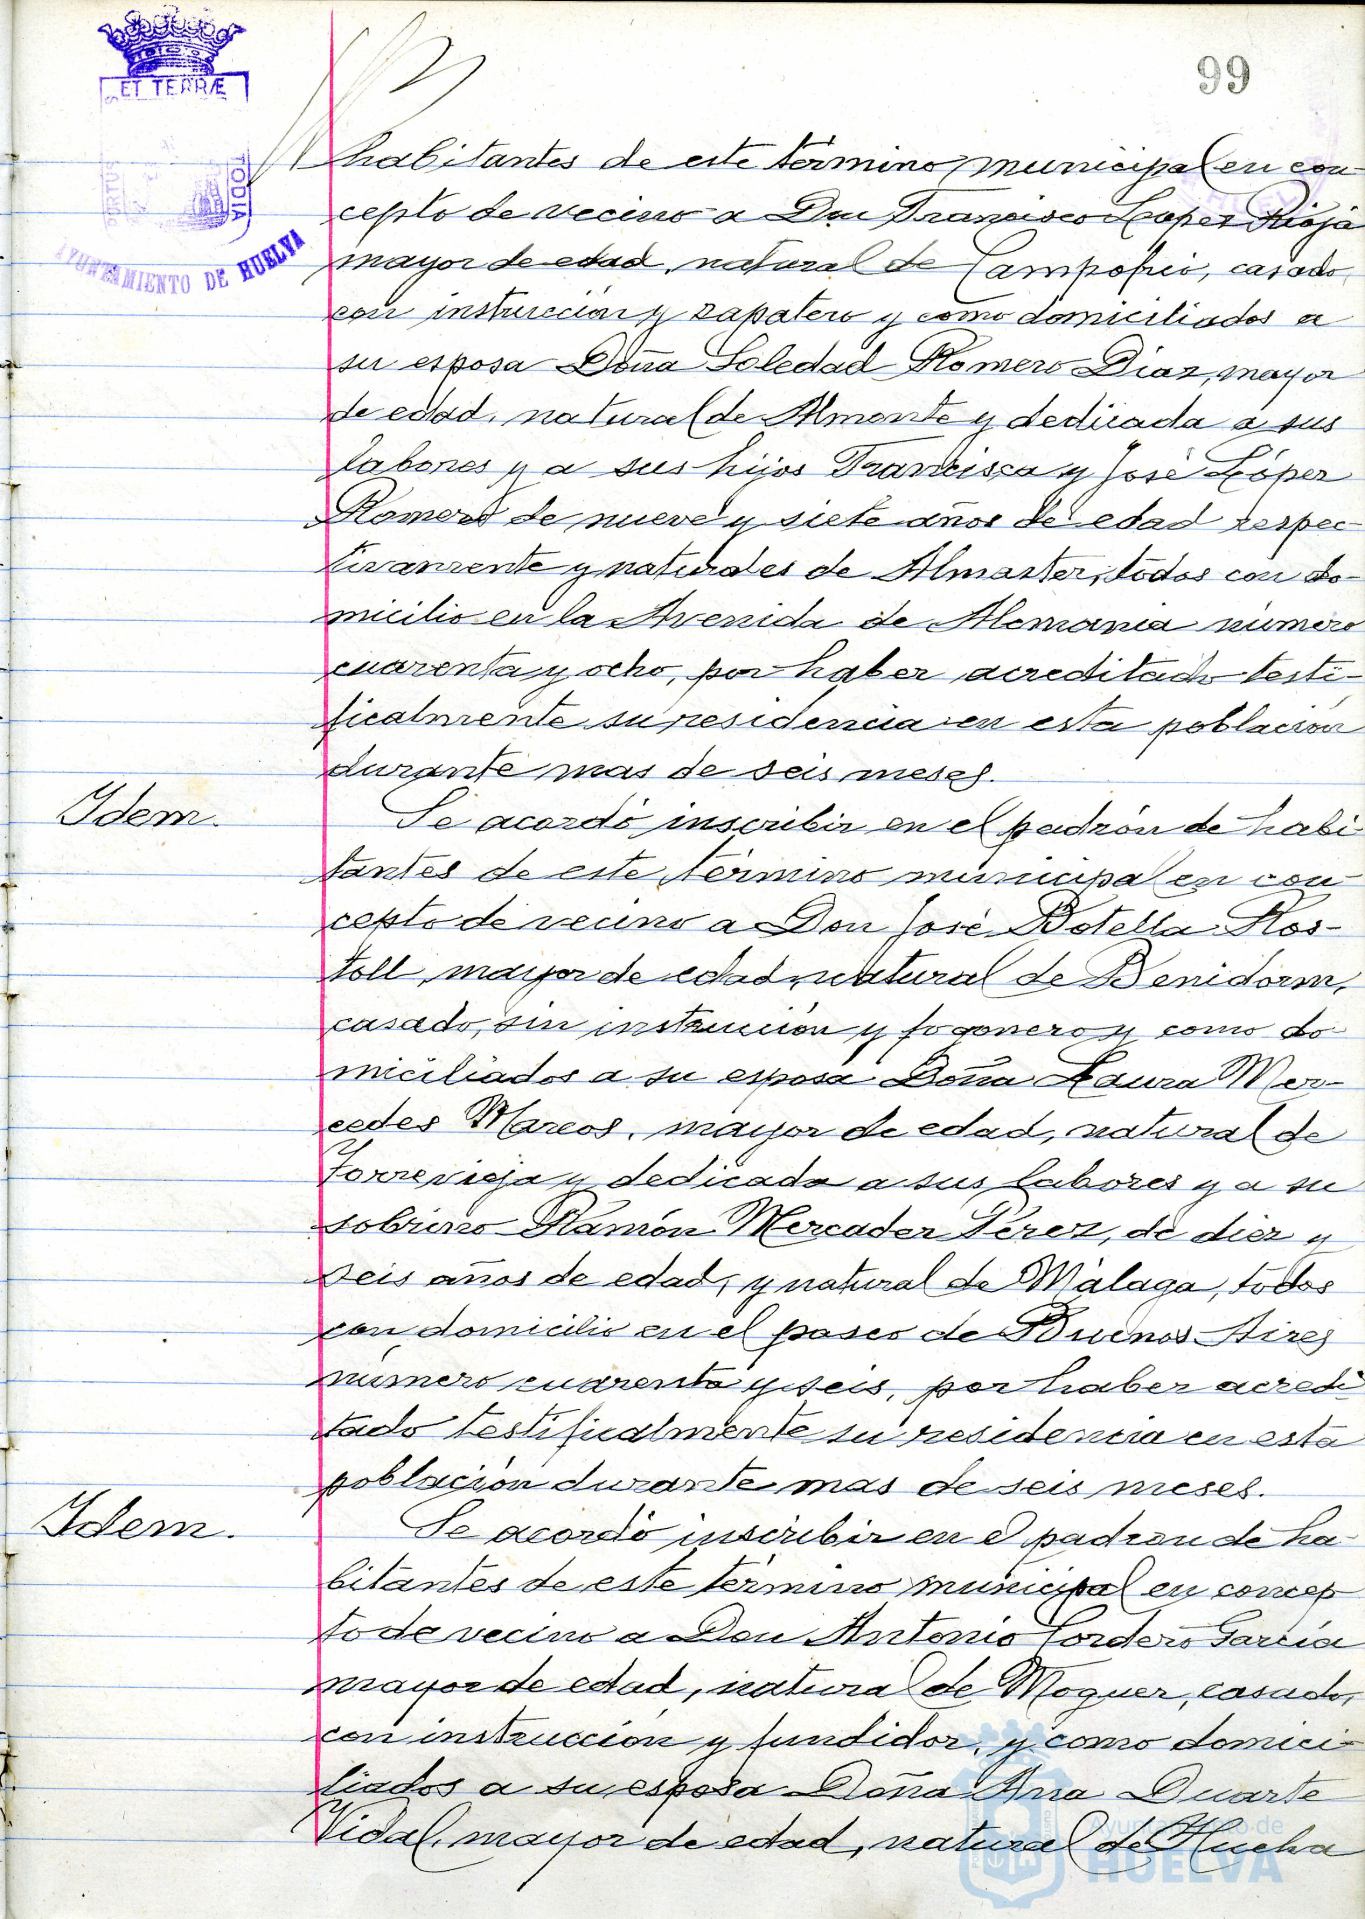 99
ET TERRÆ
PORTUS
TODIA
AYUNTAMIENTO DE HUELVA
habitantes de este término municipal en con-
cepto de vecino a Don Francisco Lopez Rioja
mayor de edad, natural de Campofrio, casado,
con instrucción y zapatero y como domiciliados a
su esposa Doña Soledad Romero Diaz, mayor
de edad, natural de Almonte y dedicada a sus
labores y a sus hijos Francisca y José López
Romero de nueve y siete años de edad respec-
tivamente y naturales de Almaster, todos con do-
micilio en la Avenida de Alemania número
cuarenta y ocho, por haber acreditado testi-
ficalmente su residencia en esta población
durante mas de seis meses.
Idem.
Se acordó inscribir en el padrón de habi-
tantes de este término municipal en con-
cepto de vecino a Don José Botella Ros-
toll, mayor de edad, natural de Benidorm,
casado, sin instrucción y fogonero y como do-
miciliados a su esposa Doña Laura Mer-
cedes Marcos, mayor de edad, natural de
Torrevieja y dedicada a sus labores y a su
sobrino Ramón Mercader Pérez, de diez y
seis años de edad, y natural de Málaga, todos
con domicilio en el paseo de Buenos Aires
número cuarenta y seis, por haber acredi-
tado testificalmente su residencia en esta
población durante mas de seis meses.
Idem.
Se acordó inscribir en el padron de ha-
bitantes de este término municipal en concep-
to de vecino a Don Antonio Cordero García
mayor de edad, natural de Moguer, casado,
con instrucción y fundidor, y como domici-
liados a su esposa Doña Ana Duarte
Vidal, mayor de edad, natural de Huelva
Ayuntamiento de
HUELVA